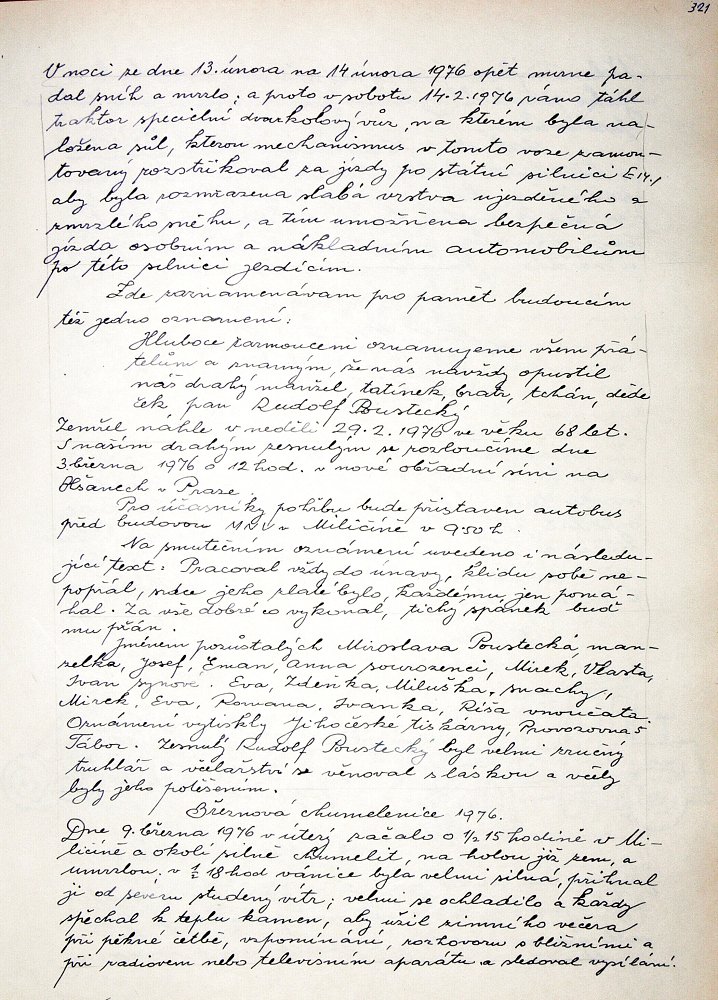 321
V noci ze dne 13. února na 14 února 1976 opět mírně pa-
dal sníh a mrzlo; a proto v sobotu 14.2.1976 ráno táhl
traktor speciélní dvoukolový vůz, na kterém byla na-
ložena sůl, kterou mechanismus v tomto voze zamon-
tovaný rozstřikoval za jízdy po státní silnici E14.,
aby byla rozmrazena slabá vrstva ujezděného a
zmrzlého sněhu, a tím umožněna bezpečná
jízda osobním a nákladním automobilům
po této silnici jezdícím.
Zde zaznamenávám pro pamět budoucím
též jedno oznámení:
Hluboce zarmouceni oznamujeme všem přá-
telům a známým, že nás navždy opustil
náš drahý manžel, tatínek, bratr, tchán, děde
ček pan Rudolf Poustecký
Zemřel náhle v neděli 29.2.1976 ve věku 68 let.
S naším drahým zesnulým se rozloučíme dne
3. března 1976 o 12 hod. v nové obřadní síni na
Olšanech v Praze.
Pro účastníky pohřbu bude přistaven autobus
před budovou MNV v Miličíně v 950 h.
Na smutečním oznámení uvedeno i následu-
jící text: Pracoval vždy do únavy, klidu sobě ne-
popřál, srdce jeho zlaté bylo, každému jen pomá-
hal. Za vše dobré co vykonal, tichý spánek buď
mu přán.
Jménem pozůstalých Miroslava Poustecká man-
želka, Josef, Eman, Anna sourozenci, Mirek, Vlasta,
Ivan synové. Eva, Zdeňka, Miluška, snachy,
Mirek, Eva, Romana, Ivanka, Ríša vnoučata.
Oznámení vytiskly Jihočeské tiskárny, Provozovna 5
Tábor. Zesnulý Rudolf Poustecký byl velmi zručný
truhlář a včelařství se věnoval s láskou a včely
byly jeho potěšením.
Březnová chumelenice 1976.
Dne 9. března 1976 v úterý začalo o 1/2 15 hodině v Mi-
ličíně a okolí silně chumelit, na holou již zem, a
umrzlou. v 1/2 18 hod vánice byla velmi silná, přihnal
ji od severu studený vítr; velmi se ochladilo a každý
spěchal k teplu kamen, aby užil zimního večera
při pěkné četbě, vzpomínání, rozhovoru s bližními a
při radiovém nebo televisním aparátu a sledoval vysílání.